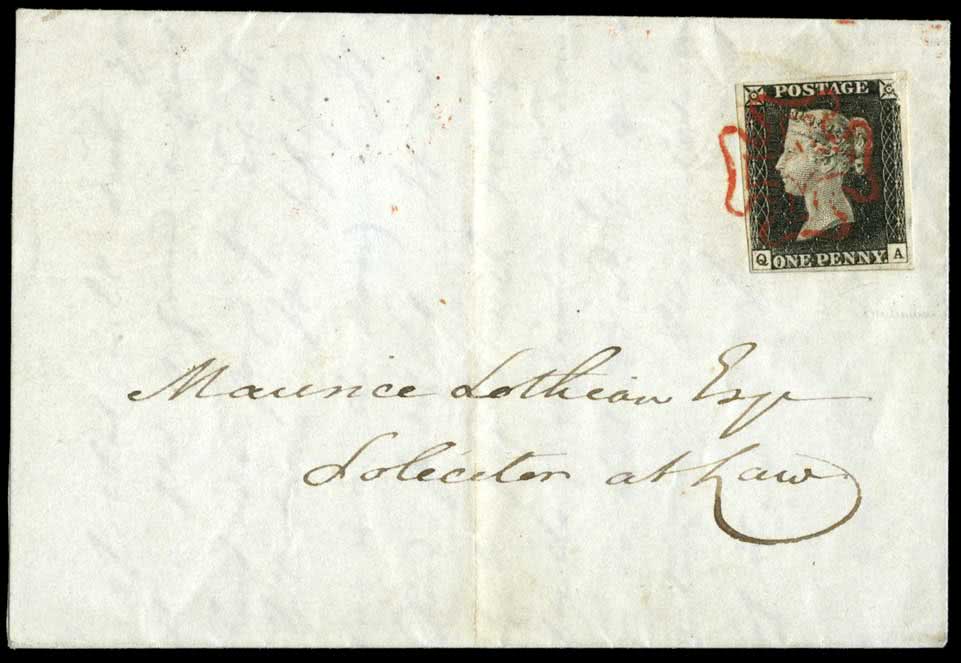 POSTAGE
Q ONE PENNY. A
Maurice Lothian Esqr
Soliciter at Law